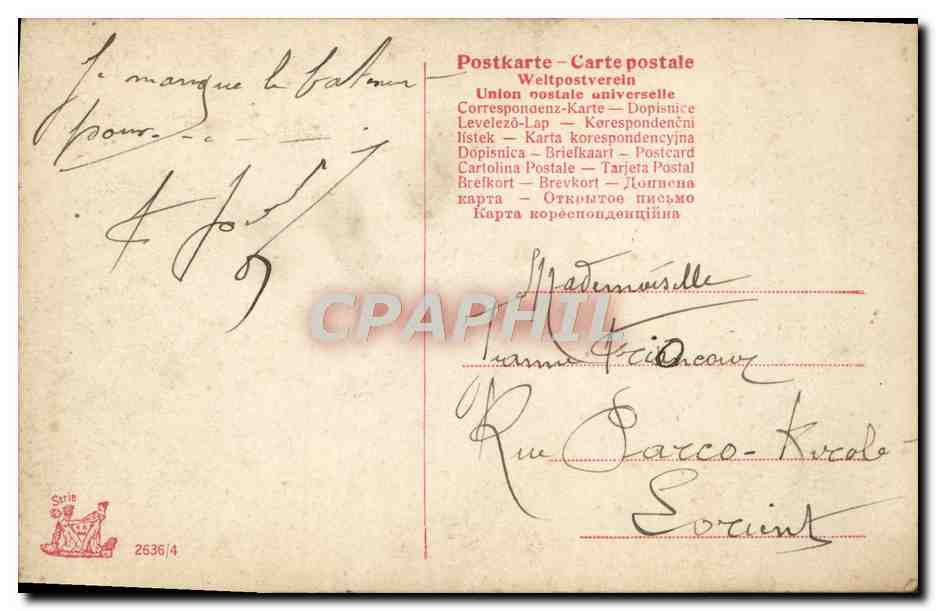 Je manque le bateau
pour
Postkarte – Carte postale
Weltpostverein
Union postale universelle
Correspondenz-Karte — Dopisnice
Levelezõ-Lap — Korespondenční
lístek — Karta korespondencyjna
Dopisnica — Briefkaart — Postcard
Cartolina Postale — Tarjeta Postal
Brefkort — Brevkort — Дописна
карта — Открытое письмо
Карта кореспонденційна
CPAPHIL
Mademoiselle
Rue Parco-
Lorient
Serie
2636/4